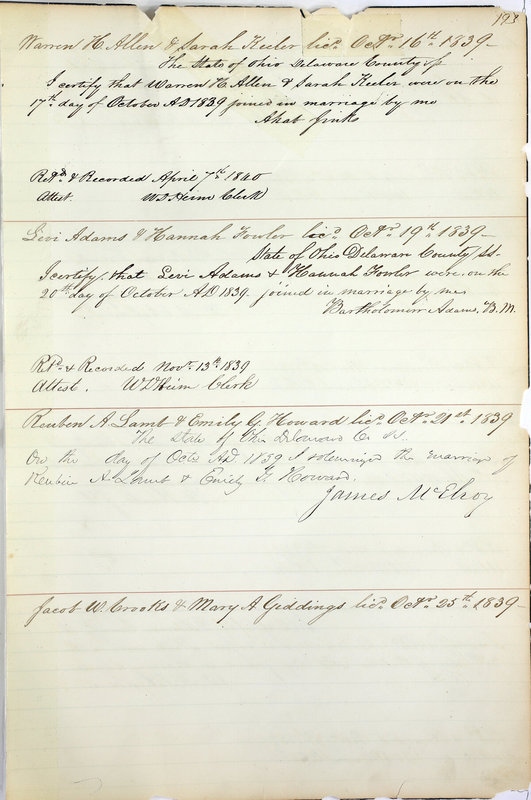 193
Warren H. Allen & Sarah Keeler lic'd Oct'r 16th 1839
The State of Ohio Delaware County ss
I certify that Warren H Allen & Sarah Keeler were on the
17th day of October AD 1839 joined in marriage by me
Ahab Jinks
Ret'd & Recorded April 7th 1840
Attest. W D Heim Clerk
Levi Adams & Hannah Fowler lic'd Oct'r 19th 1839
State of Ohio Delaware County, ss.
I certify, that Levi Adams & Hannah Fowler were on the
20th day of October AD 1839 joined in marriage by me
Bartholomew Adams, B. M.
Ret'd & Recorded Nov'r 13th 1839
Attest. W D Heim Clerk
Reuben A. Lamb & Emily G. Howard lic'd Oct'r 21st 1839
The State of Ohio Delaware Co ss.
On the day of Octr AD. 1839 I solemnized the marriage of
Reubin A. Lamb & Emily G. Howard.
James McElroy
Jacob W. Crooks & Mary A Giddings lic'd Oct'r 25th 1839